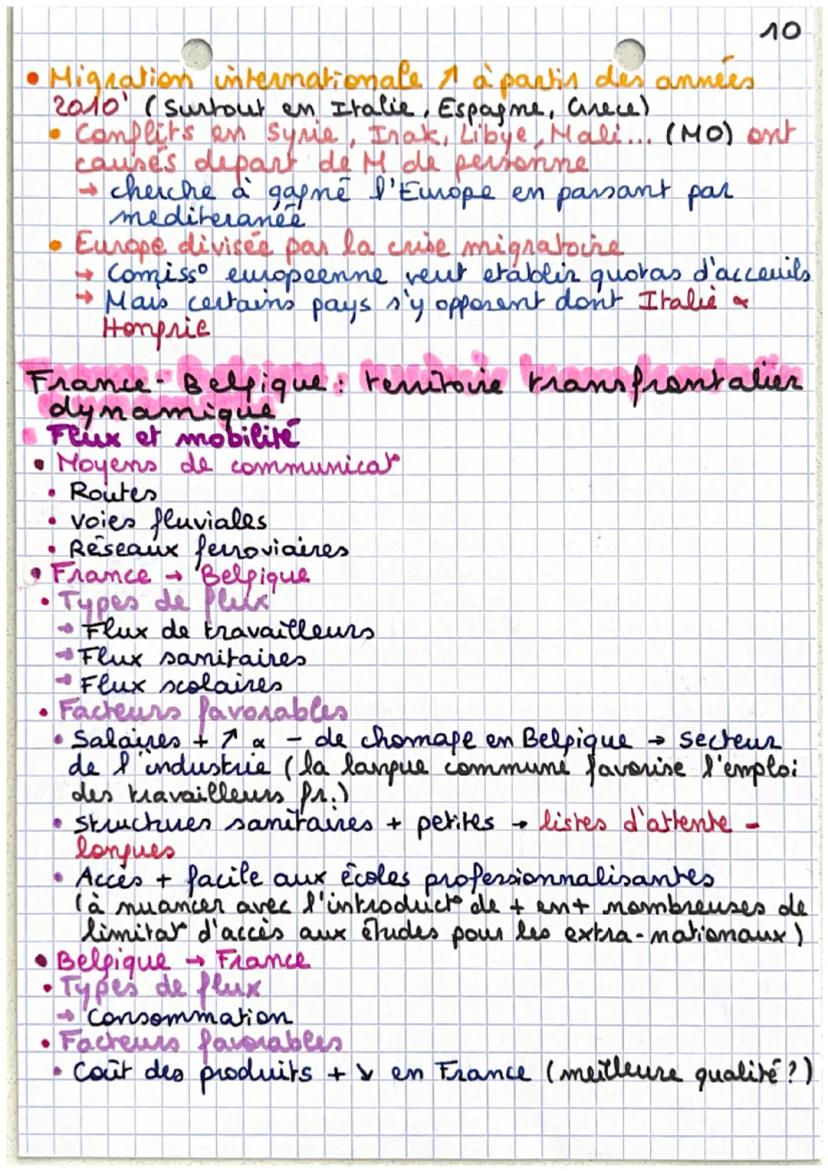 10
• Migration internationale ↗ à partir des années
2010' (surtout en Italie, Espagne, Grece)
• Conflits en Syrie, Irak, Libye, Mali... (MO) ont
causés depart de M de personne
→ cherche à gagné l'Europe en passant par
mediteranée
• Europe divisée par la crise migratoire
→ Comiss° europeenne veut etablir quotas d'acceuils
→ Mais certains pays s'y opposent dont Italie &
Hongrie
France-Belgique : territoire transfrontalier
dynamique
Flux et mobilité
• Moyens de communicat°
• Routes
• voies fluviales
• Réseaux ferroviaires
• France → Belgique
• Types de flux
→ Flux de travailleurs
→ Flux sanitaires
→ Flux scolaires
• Facteurs favorables
• Salaires + ↗ & - de chomage en Belgique → secteur
de l'industrie (la langue commune favorise l'emploi
des travailleurs fr.)
• structures sanitaires + petites → listes d'attente -
longues
• Accès + facile aux écoles professionnalisantes
(à nuancer avec l'introduct° de + en + nombreuses de
limitat° d'accès aux études pour les extra-nationaux)
• Belgique → France
• Types de flux
→ Consommation
• Facteurs favorables
• Coût des produits + ↘ en France (meilleure qualité ?)